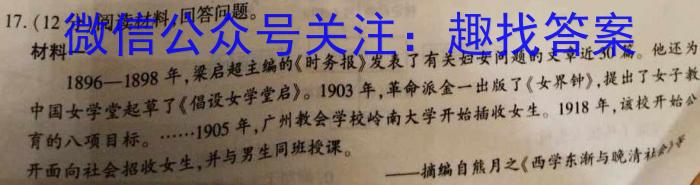 17.(12分)阅读材料,回答问题。
微信公众号关注:趣找答案
材料
1896—1898年,梁启超主编的《时务报》发表了有关妇女问题的文章近30篇。他还为
中国女学堂起草了《倡设女学堂启》。1903年,革命派金一出版了《女界钟》,提出了女子教
育的八项目标。……1905年,广州教会学校岭南大学开始插收女生。1918年,该校开始公
开面向社会招收女生,并与男生同班授课。
——摘编自熊月之《西学东渐与晚清社会》等